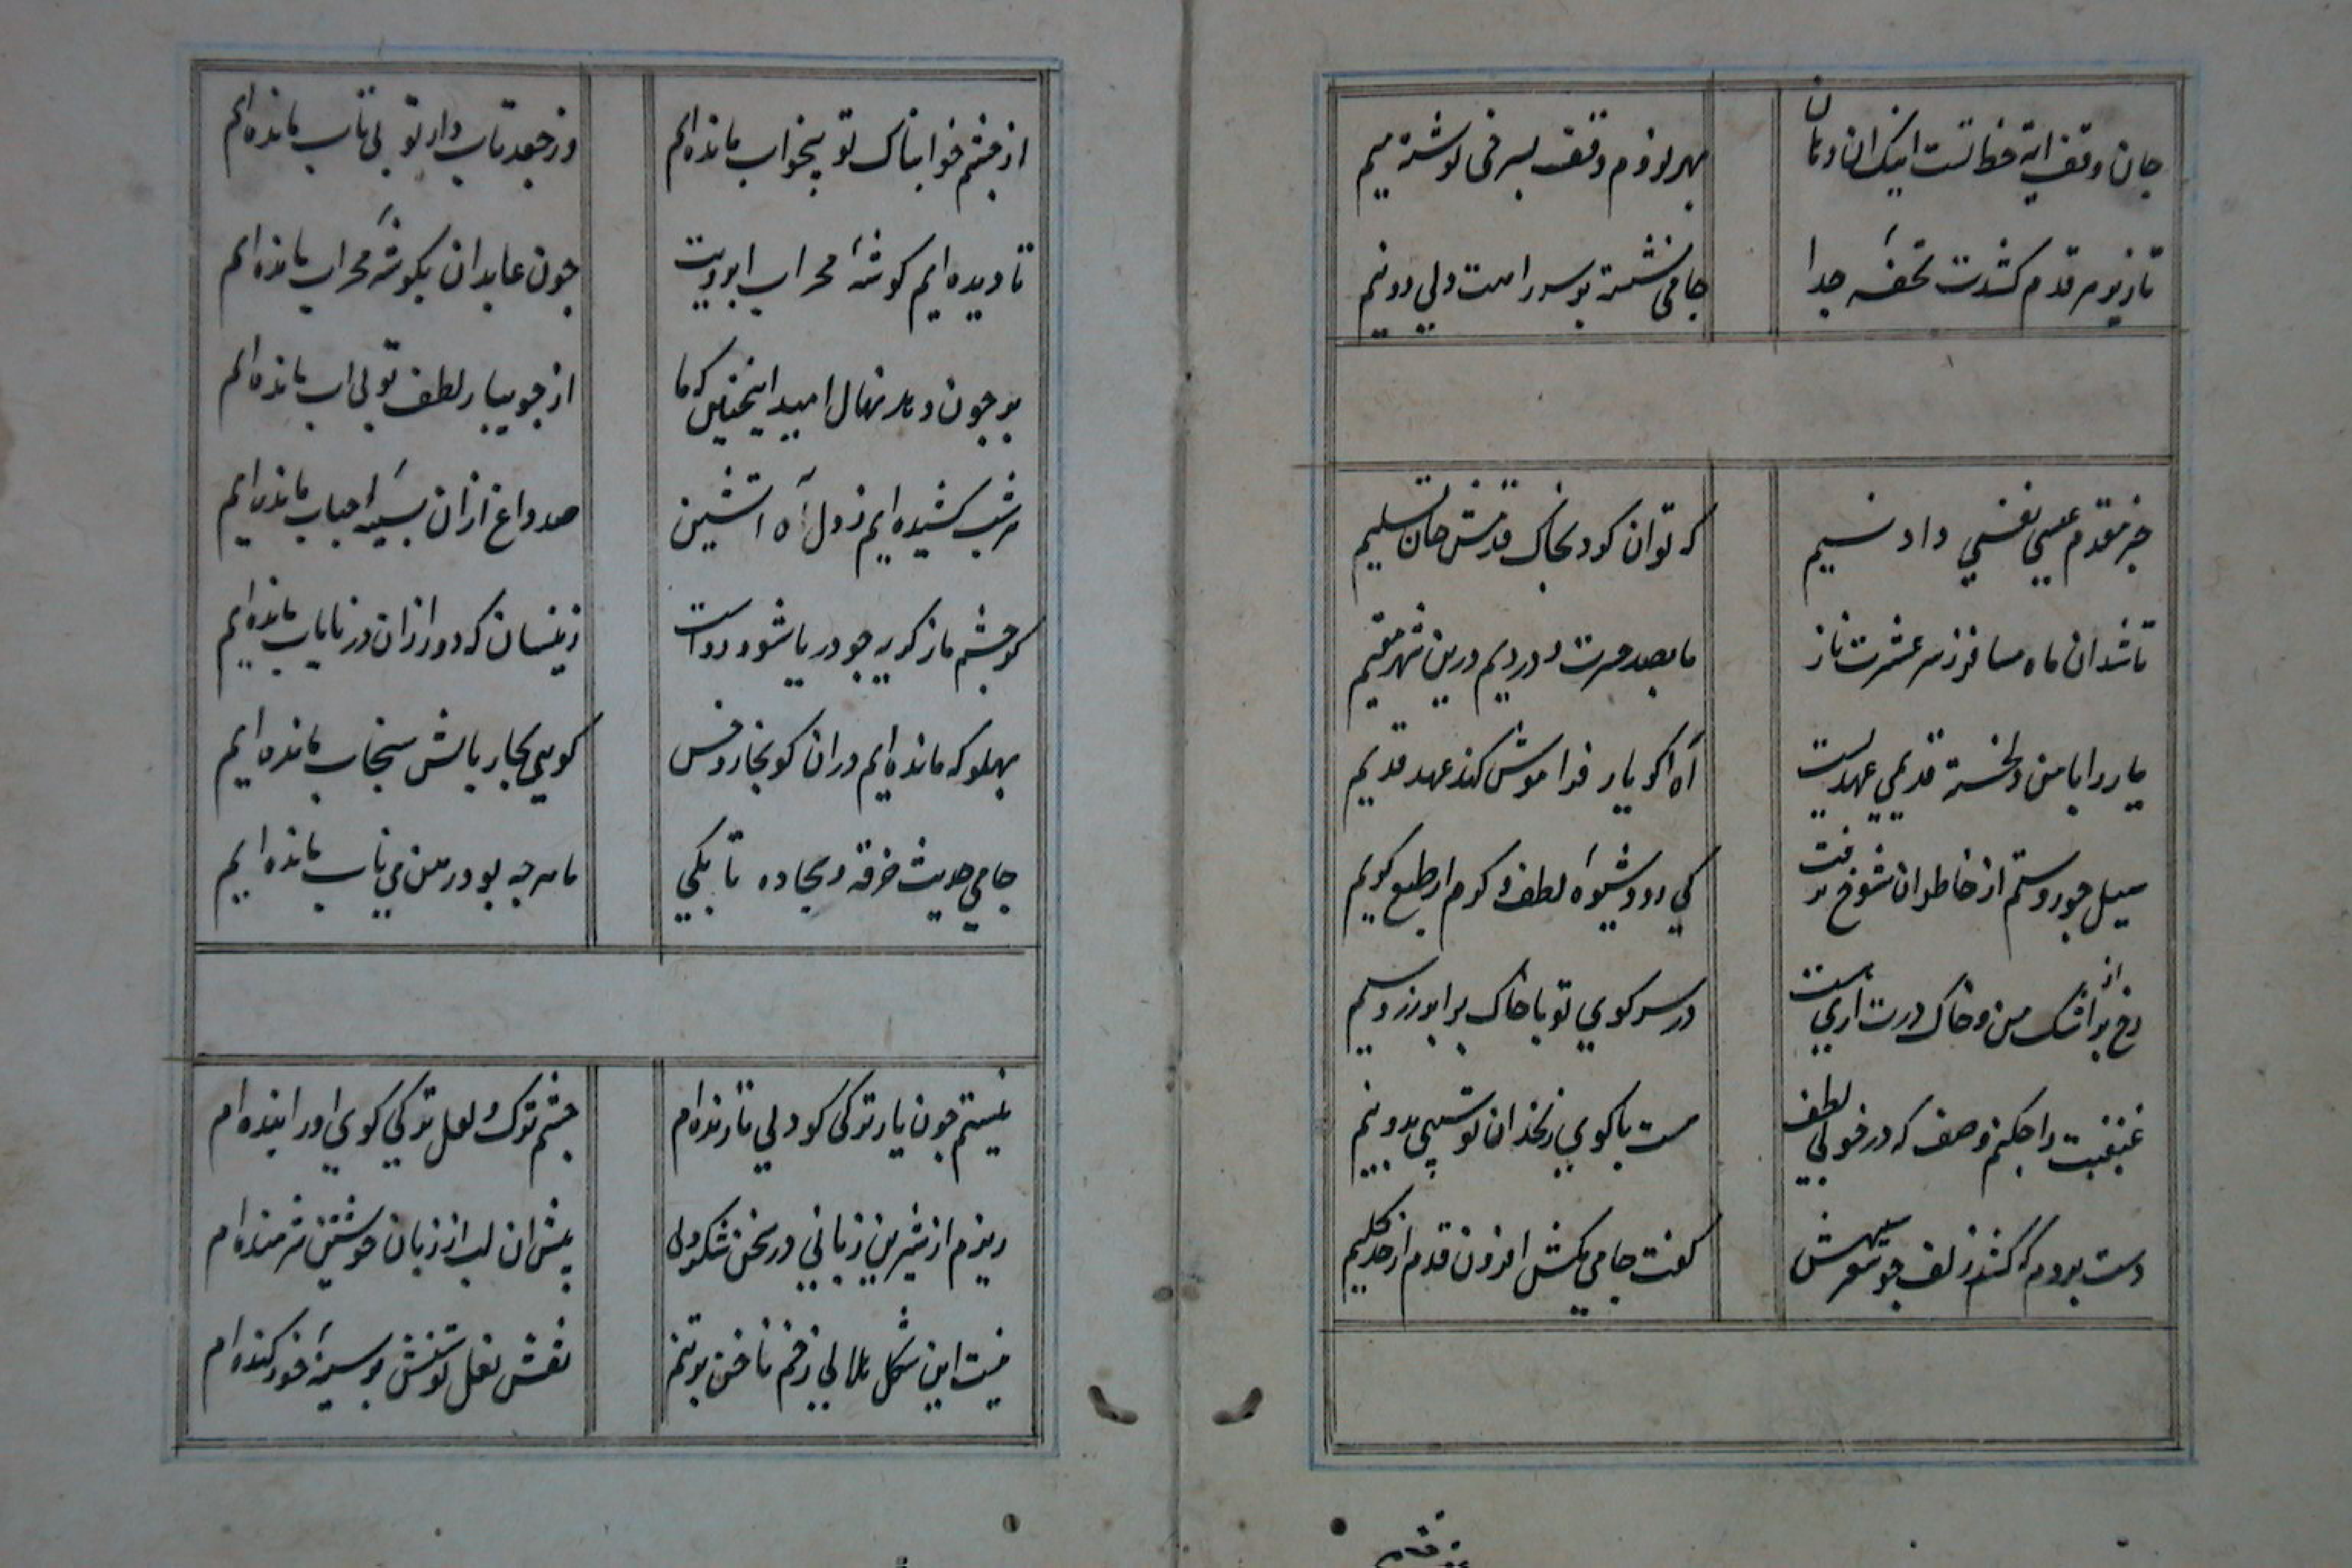 جان وقف ایة خط تست اینک ان دهان
بهر لزوم وقف بسرخی نوشته میم
تا زیر قدم کشدت تحفهٔ جدا
جامی نشسته بر سر راهت دلی دو نیم
خبر مقدم عیسی نفسی داد نسیم
که توان کرد بخاک قدمش جان تسلیم
تا شد ان ماه مسافر ز سر عشرت و ناز
ما بصد حسرت و دردیم درین شهر مقیم
یار را با من دلخسته قدیمی عهدیست
آه اگر یار فراموش کند عهد قدیم
میل جور و ستم از خاطر ان شوخ نرفت
کی رود شیوهٔ لطف و کرم از طبع کریم
رخ پر از اشک من و خاک درت اری هست
در سر کوی تو با خاک برابر زر و سیم
غبغبت را چکنم وصف که در خوبی لطف
هست با کوی زنخدان تو سیبی بدو نیم
دست بردم که کشم زلف چو شعر سیهش
گفت جامی مکش افزون قدم از حد گلیم
از چشم خوابناک تو بیخواب مانده‌ایم
وز جعد تاب دار تو بی تاب مانده‌ایم
تا دیده ایم گوشهٔ محراب ابرویت
چون عابدان بگوشهٔ محراب مانده‌ایم
بر چون دهد نهال امید اینچنین که ما
از جویبار لطف تو بی اب مانده‌ایم
هر شب کشیده ایم ز دل آه اتشین
صد داغ ازان بسینهٔ احباب مانده‌ایم
گو چشم ما ز گریه چو دریا شود رواست
زینسان که دور ازان در نایاب مانده‌ایم
پهلو که مانده‌ایم دران کو بخار و خس
گویی بجای بالش سنجاب مانده‌ایم
جامی حدیث خرقه و سجاده تا بکی
ما هر چه بود در رهن می ناب مانده‌ایم
نیستم چون یار ترکی گو ولی تا زنده‌ام
چشم ترک و لعل ترکی گوی او را بنده‌ام
ریزم از شیرین زبانی در سخن شکر ولی
پیش ان لب از زبان خویشتن شرمنده‌ام
نیست این شکل هلالی زخم ناخن بر تنم
نقش نعل توسنش بر سینهٔ خود کنده‌ام